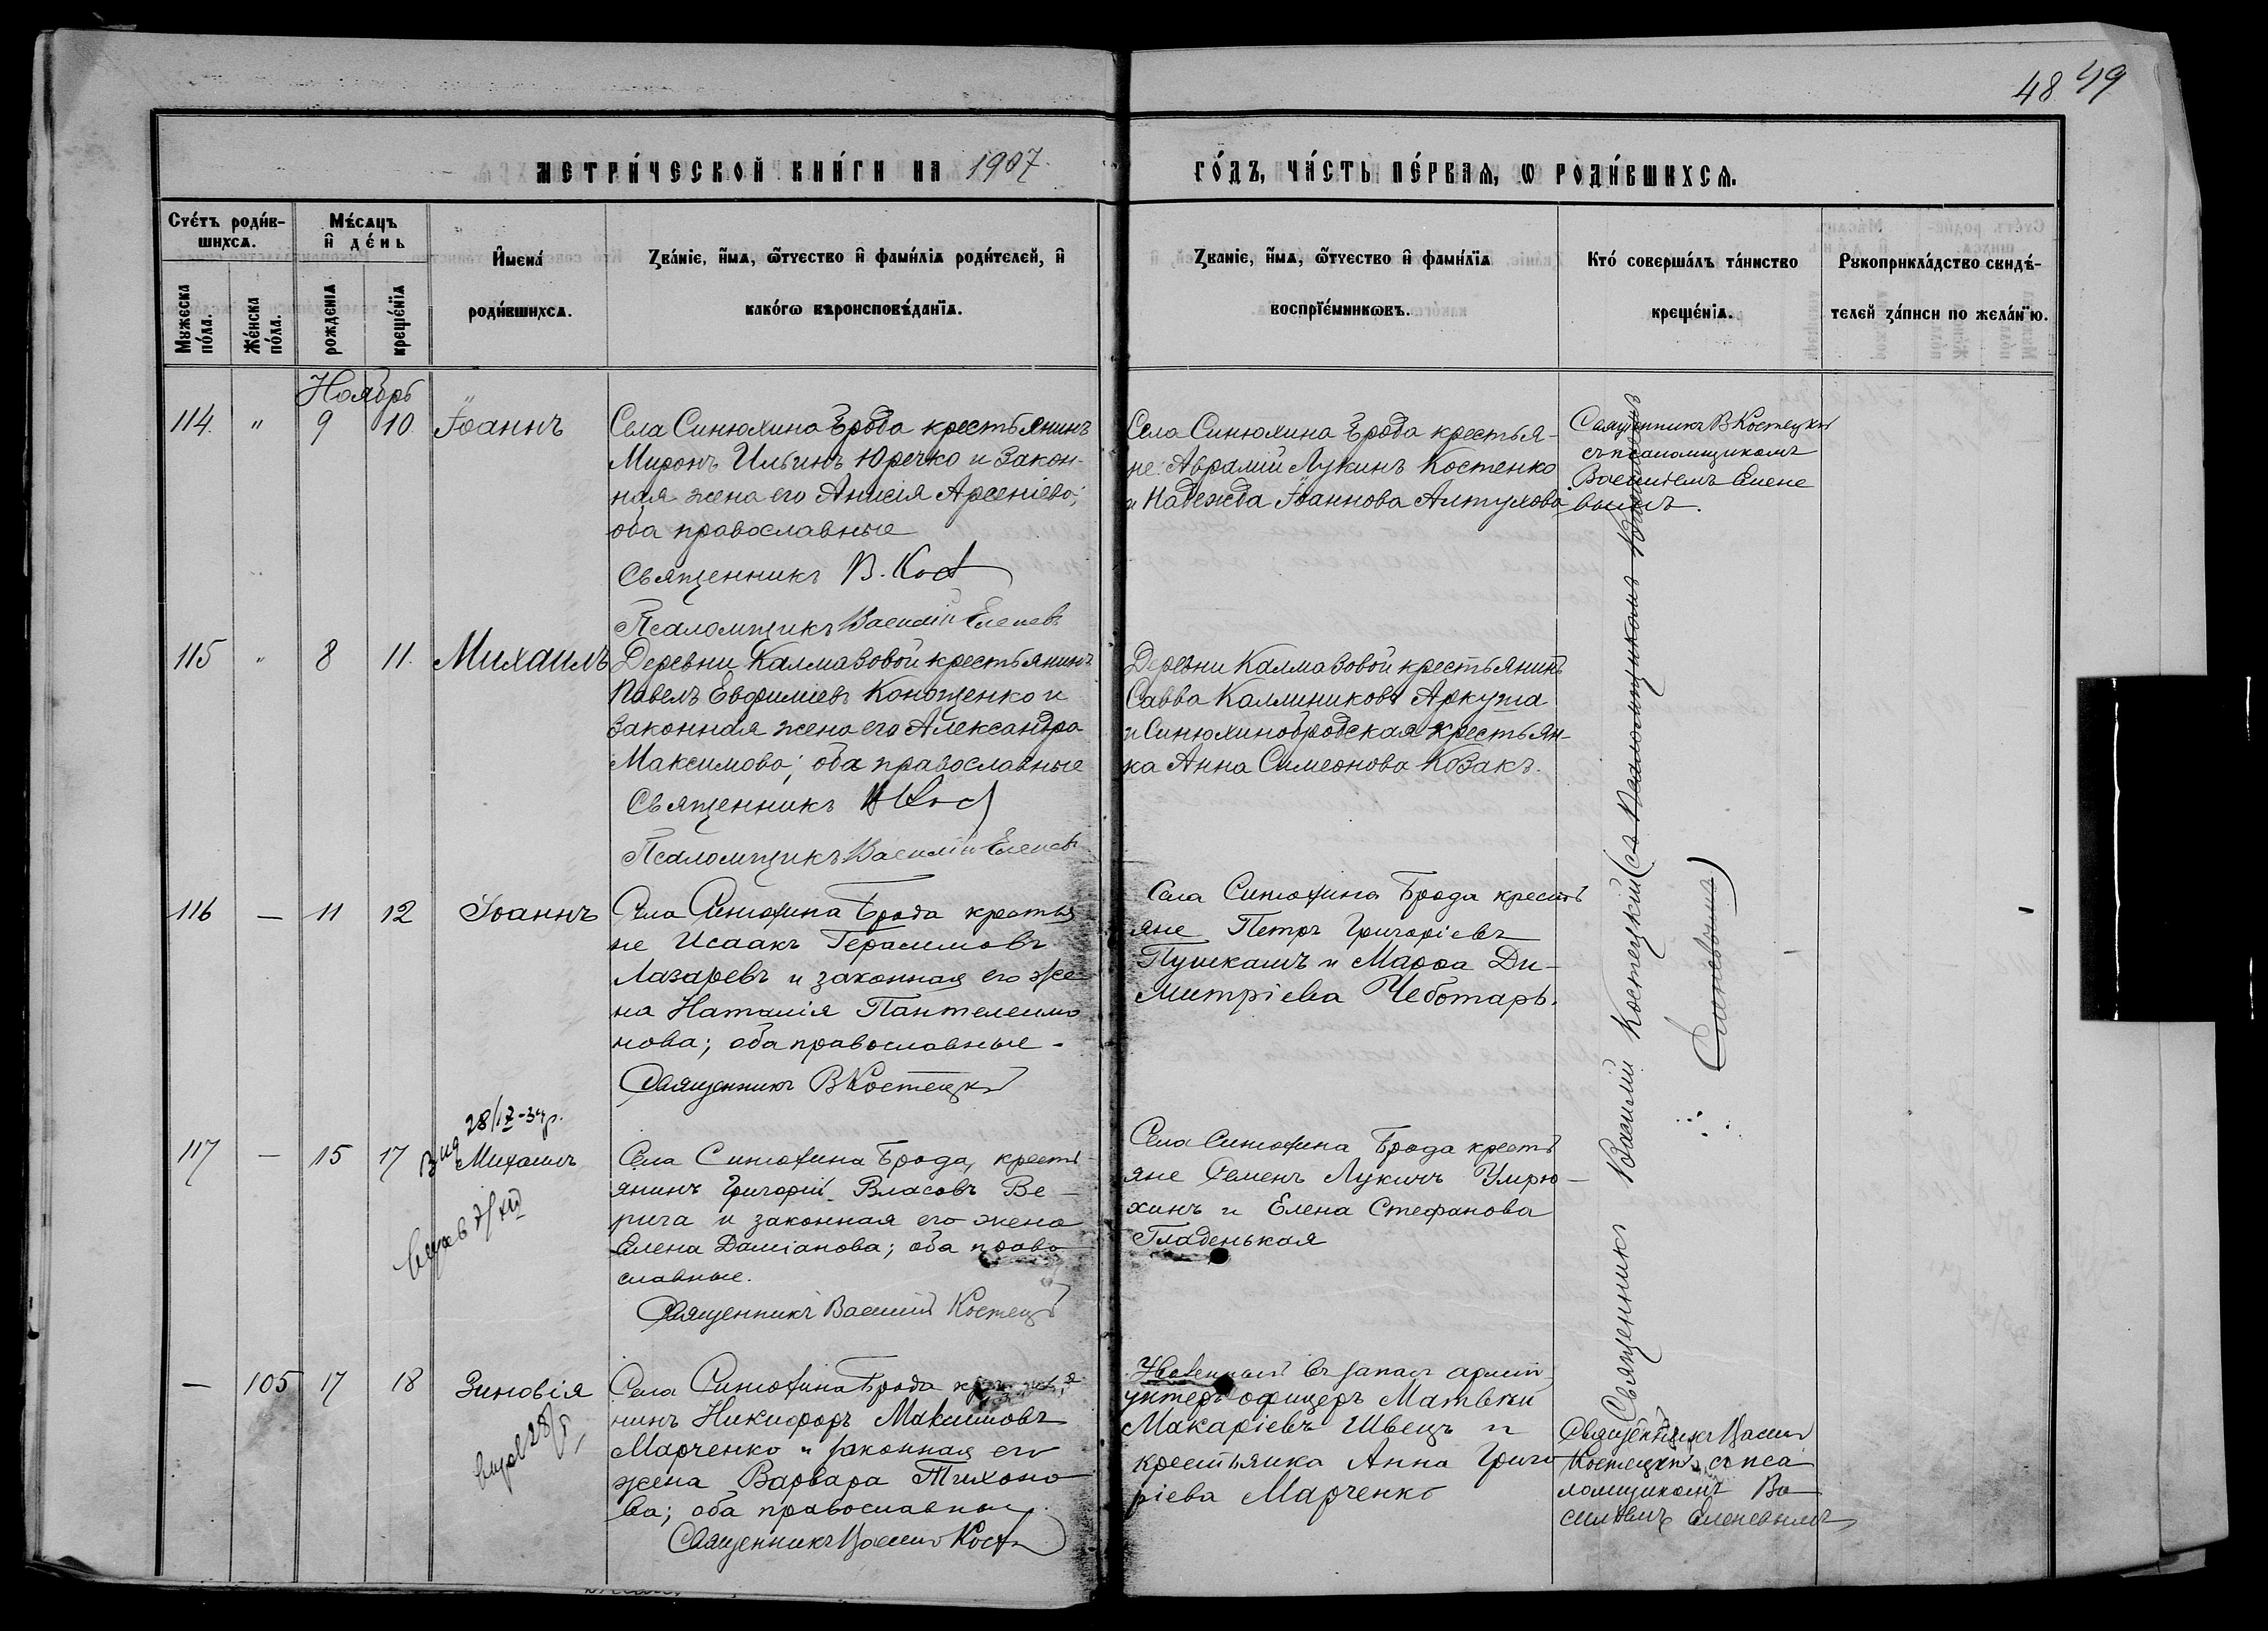 48 49
МЕТРИ́ЧЕСКОЙ КНИ́ГИ НА 1907
ГО́ДЪ, ЧА́СТЬ ПЕ́РВАѦ, Ѡ РОДИ́ВШИХСѦ.
Счетъ роди́в-
шихсѧ.
Мужеска
по́ла.
Же́нска
по́ла.
Мѣ́сѧцъ
и҆ де́нь
рожденїѧ
креще́нїѧ
И҆мена́
роди́вшихсѧ.
Зва́нїе, и҆́мѧ, ѻ҆́тчество и҆ фами́лїѧ роди́телей, и҆
како́гѡ вѣроисповѣ́данїѧ.
Зва́нїе, и҆́мѧ, ѻ҆́тчество и҆ фами́лїѧ
воспрїе́мникѡвъ.
Кто́ соверша́лъ та́инство
креще́нїѧ.
Рукоприкла́дство свидѣ́-
телей за́писи по жела́нїю.
Ноябрь
114. " 9 10 Іоаннъ
Села Синюхина Брода крестьянинъ
Миронъ Ильинъ Юречко и закон-
ная жена его Анисія Арсеніева;
оба православные
Священникъ В. Кост
Псаломщикъ Василій Еленевъ
Села Синюхина Брода крестья-
не: Аврамій Лукинъ Костенко
и Надежда Іоаннова Алтухова
Священникъ В Костецкій
съ псаломщикомъ
Василіемъ Елене
вымъ.
115 " 8 11. Михаилъ
Деревни Калмазовой крестьянинъ
Павелъ Евфиміевъ Конощенко и
законная жена его Александра
Максимова; оба православные
Священникъ В Кос
Псаломщикъ Василій Еленевъ
Деревни Калмазовой крестьянинъ
Савва Каллиниковъ Аркуша
и Синюхинобродская крестьян-
ка Анна Симеонова Козакъ.
116 — 11 12 Іоаннъ
Села Синюхина Брода крестья
не Исаакъ Герасимовъ
Лазаревъ и законная его же-
на Наталія Пантелеимо
нова; оба православные.
Священникъ В Костецкій
Села Синюхина Брода кресть
яне Петръ Григоріевъ
и Марѳа Ди-
митріева Чеботарь.
28/IX-34р.
117 — 15 17 Михаилъ
Села Синюхина Брода, кресть
янинъ Григорій Власовъ Ве-
рига и законная его жена
Елена Даміанова; оба право
славные.
Священникъ Василій Костецк
Села Синюхина Брода кресть
яне Семенъ Лукичъ Умрю-
хинъ и Елена Стефанова
Гладенькая
Священникъ Василій Костецкій (съ Псаломщикомъ
Еленевымъ)
— 105 17 18 Зиновія
Села Синюхина Брода крестья
нинъ Никифоръ Максимовъ
Марченко и законная его
жена Варвара Тихоно
ва; оба православные.
Священникъ Василій Кост
Уволенный въ запасъ арміи
унтеръ офицеръ Матвѣй
Макаріевъ Швецъ и
крестьянка Анна Григо
ріева Марченко
Священникъ Василій
Костецкій съ пса
ломщикомъ Ва
силіемъ Еленевымъ